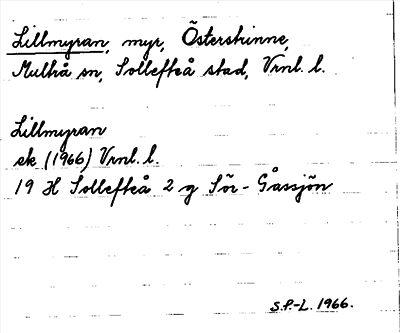 Lillmyran, myr, Österstrinne,
Multrå sn, Sollefteå stad, Vrnl. l.
Lillmyran
ek (1966) Vrnl. l.
19 H Sollefteå 2 g Sör-Gåssjön
S.P.-L. 1966.